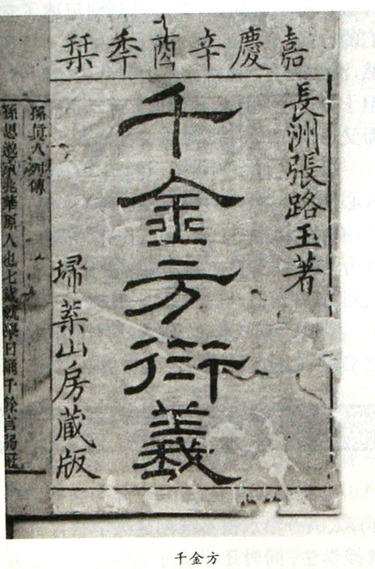 嘉慶辛酉秊栞
長洲張路玉著
千金方衍義
埽葉山房藏版
孫眞人列傳
孫思邈京兆華原人也七歲就學日誦千餘言弱冠
千金方